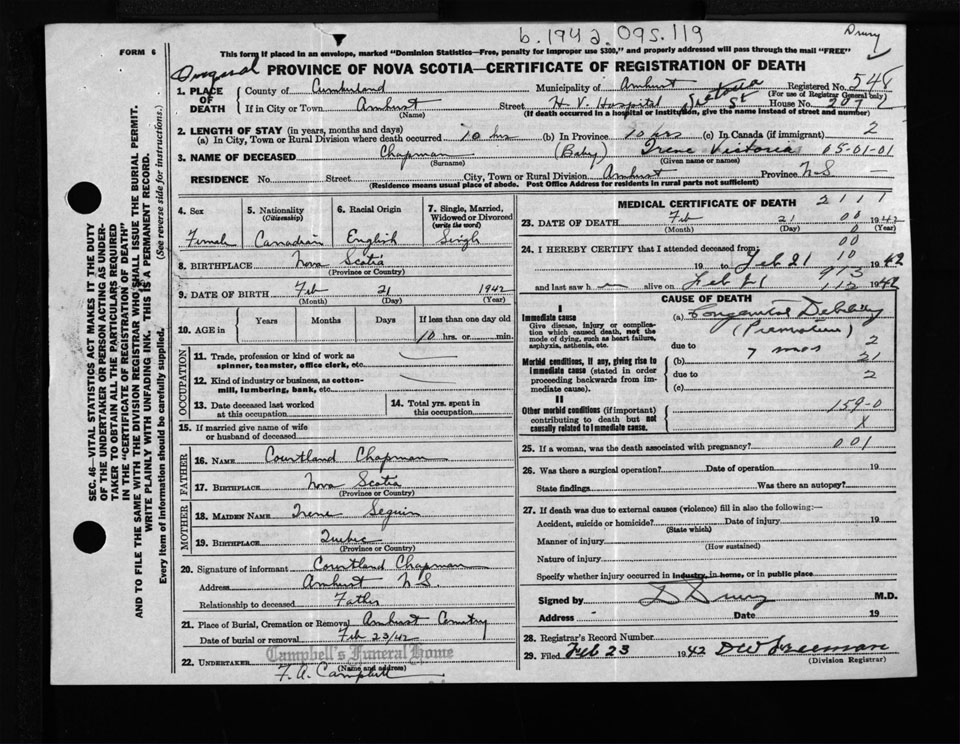 b. 1942.095.119
Drury
FORM 6
This form if placed in an envelope, marked "Dominion Statistics—Free, penalty for improper use $300," and properly addressed will pass through the mail "FREE"
PROVINCE OF NOVA SCOTIA—CERTIFICATE OF REGISTRATION OF DEATH
1. PLACE OF DEATH
County of Cumberland Municipality of Amherst Registered No. 548
(For use of Registrar General only)
If in City or Town Amherst Street H. V. Hospital St House No.
(Name) (If death occurred in a hospital or institution, give the name instead of street and number)
2. LENGTH OF STAY (in years, months and days)
(a) In City, Town or Rural Division where death occurred 10 hrs (b) In Province 10 hrs (c) In Canada (if immigrant) 2
3. NAME OF DECEASED Chapman (Baby) Irene Victoria 05-01-01
(Surname) (Given name or names)
RESIDENCE No. Street City, Town or Rural Division Amherst Province N.S.
(Residence means usual place of abode. Post Office Address for residents in rural parts not sufficient)
4. Sex
Female
5. Nationality (Citizenship)
Canadian
6. Racial Origin
English
7. Single, Married, Widowed or Divorced (write the word)
Single
8. BIRTHPLACE Nova Scotia
(Province or Country)
9. DATE OF BIRTH Feb 21 1942
(Month) (Day) (Year)
10. AGE in Years Months Days If less than one day old
10 hrs. or min.
OCCUPATION
11. Trade, profession or kind of work as spinner, teamster, office clerk, etc.
12. Kind of industry or business, as cotton-mill, lumbering, bank, etc.
13. Date deceased last worked at this occupation
14. Total yrs. spent in this occupation
15. If married give name of wife or husband of deceased
FATHER
16. NAME Courtland Chapman
17. BIRTHPLACE Nova Scotia
(Province or Country)
MOTHER
18. MAIDEN NAME Irene Seguin
19. BIRTHPLACE Quebec
(Province or Country)
20. Signature of informant Courtland Chapman
Address Amherst N.S.
Relationship to deceased Father
21. Place of Burial, Cremation or Removal Amherst Cemetry
Date of burial or removal Feb 23/42
Campbell's Funeral Home
22. UNDERTAKER F. A. Campbell
(Name and address)
MEDICAL CERTIFICATE OF DEATH 2111
23. DATE OF DEATH Feb 21 00 1942
(Month) (Day) 0 (Year)
24. I HEREBY CERTIFY that I attended deceased from: 00
19 to Feb 21 10 1942
and last saw h alive on Feb 21 1942
CAUSE OF DEATH
Immediate cause
Give disease, injury or complication which caused death, not the mode of dying, such as heart failure, asphyxia, asthenia, etc.
(a) Congenital Debility
(Premature) 2
due to 7 mos
Morbid conditions, if any, giving rise to immediate cause (stated in order proceeding backwards from immediate cause).
(b) 21
due to 2
(c)
II
Other morbid conditions (if important) contributing to death but not causally related to immediate cause.
159-0
X
25. If a woman, was the death associated with pregnancy? 001
26. Was there a surgical operation? Date of operation 19
State findings Was there an autopsy?
27. If death was due to external causes (violence) fill in also the following:—
Accident, suicide or homicide? Date of injury 19
(State which)
Manner of injury
(How sustained)
Nature of injury
Specify whether injury occurred in industry, in home, or in public place
Signed by D Drury M.D.
Address Date 19
28. Registrar's Record Number
29. Filed Feb 23 1942 DW Freeman
(Division Registrar)
SEC. 46—VITAL STATISTICS ACT MAKES IT THE DUTY
OF THE UNDERTAKER OR PERSON ACTING AS UNDER-
TAKER TO OBTAIN ALL THE PARTICULARS REQUIRED
IN THE "CERTIFICATE OF REGISTRATION OF DEATH"
AND TO FILE THE SAME WITH THE DIVISION REGISTRAR WHO SHALL ISSUE THE BURIAL PERMIT.
WRITE PLAINLY WITH UNFADING INK. THIS IS A PERMANENT RECORD.
Every item of information should be carefully supplied. (See reverse side for instructions.)